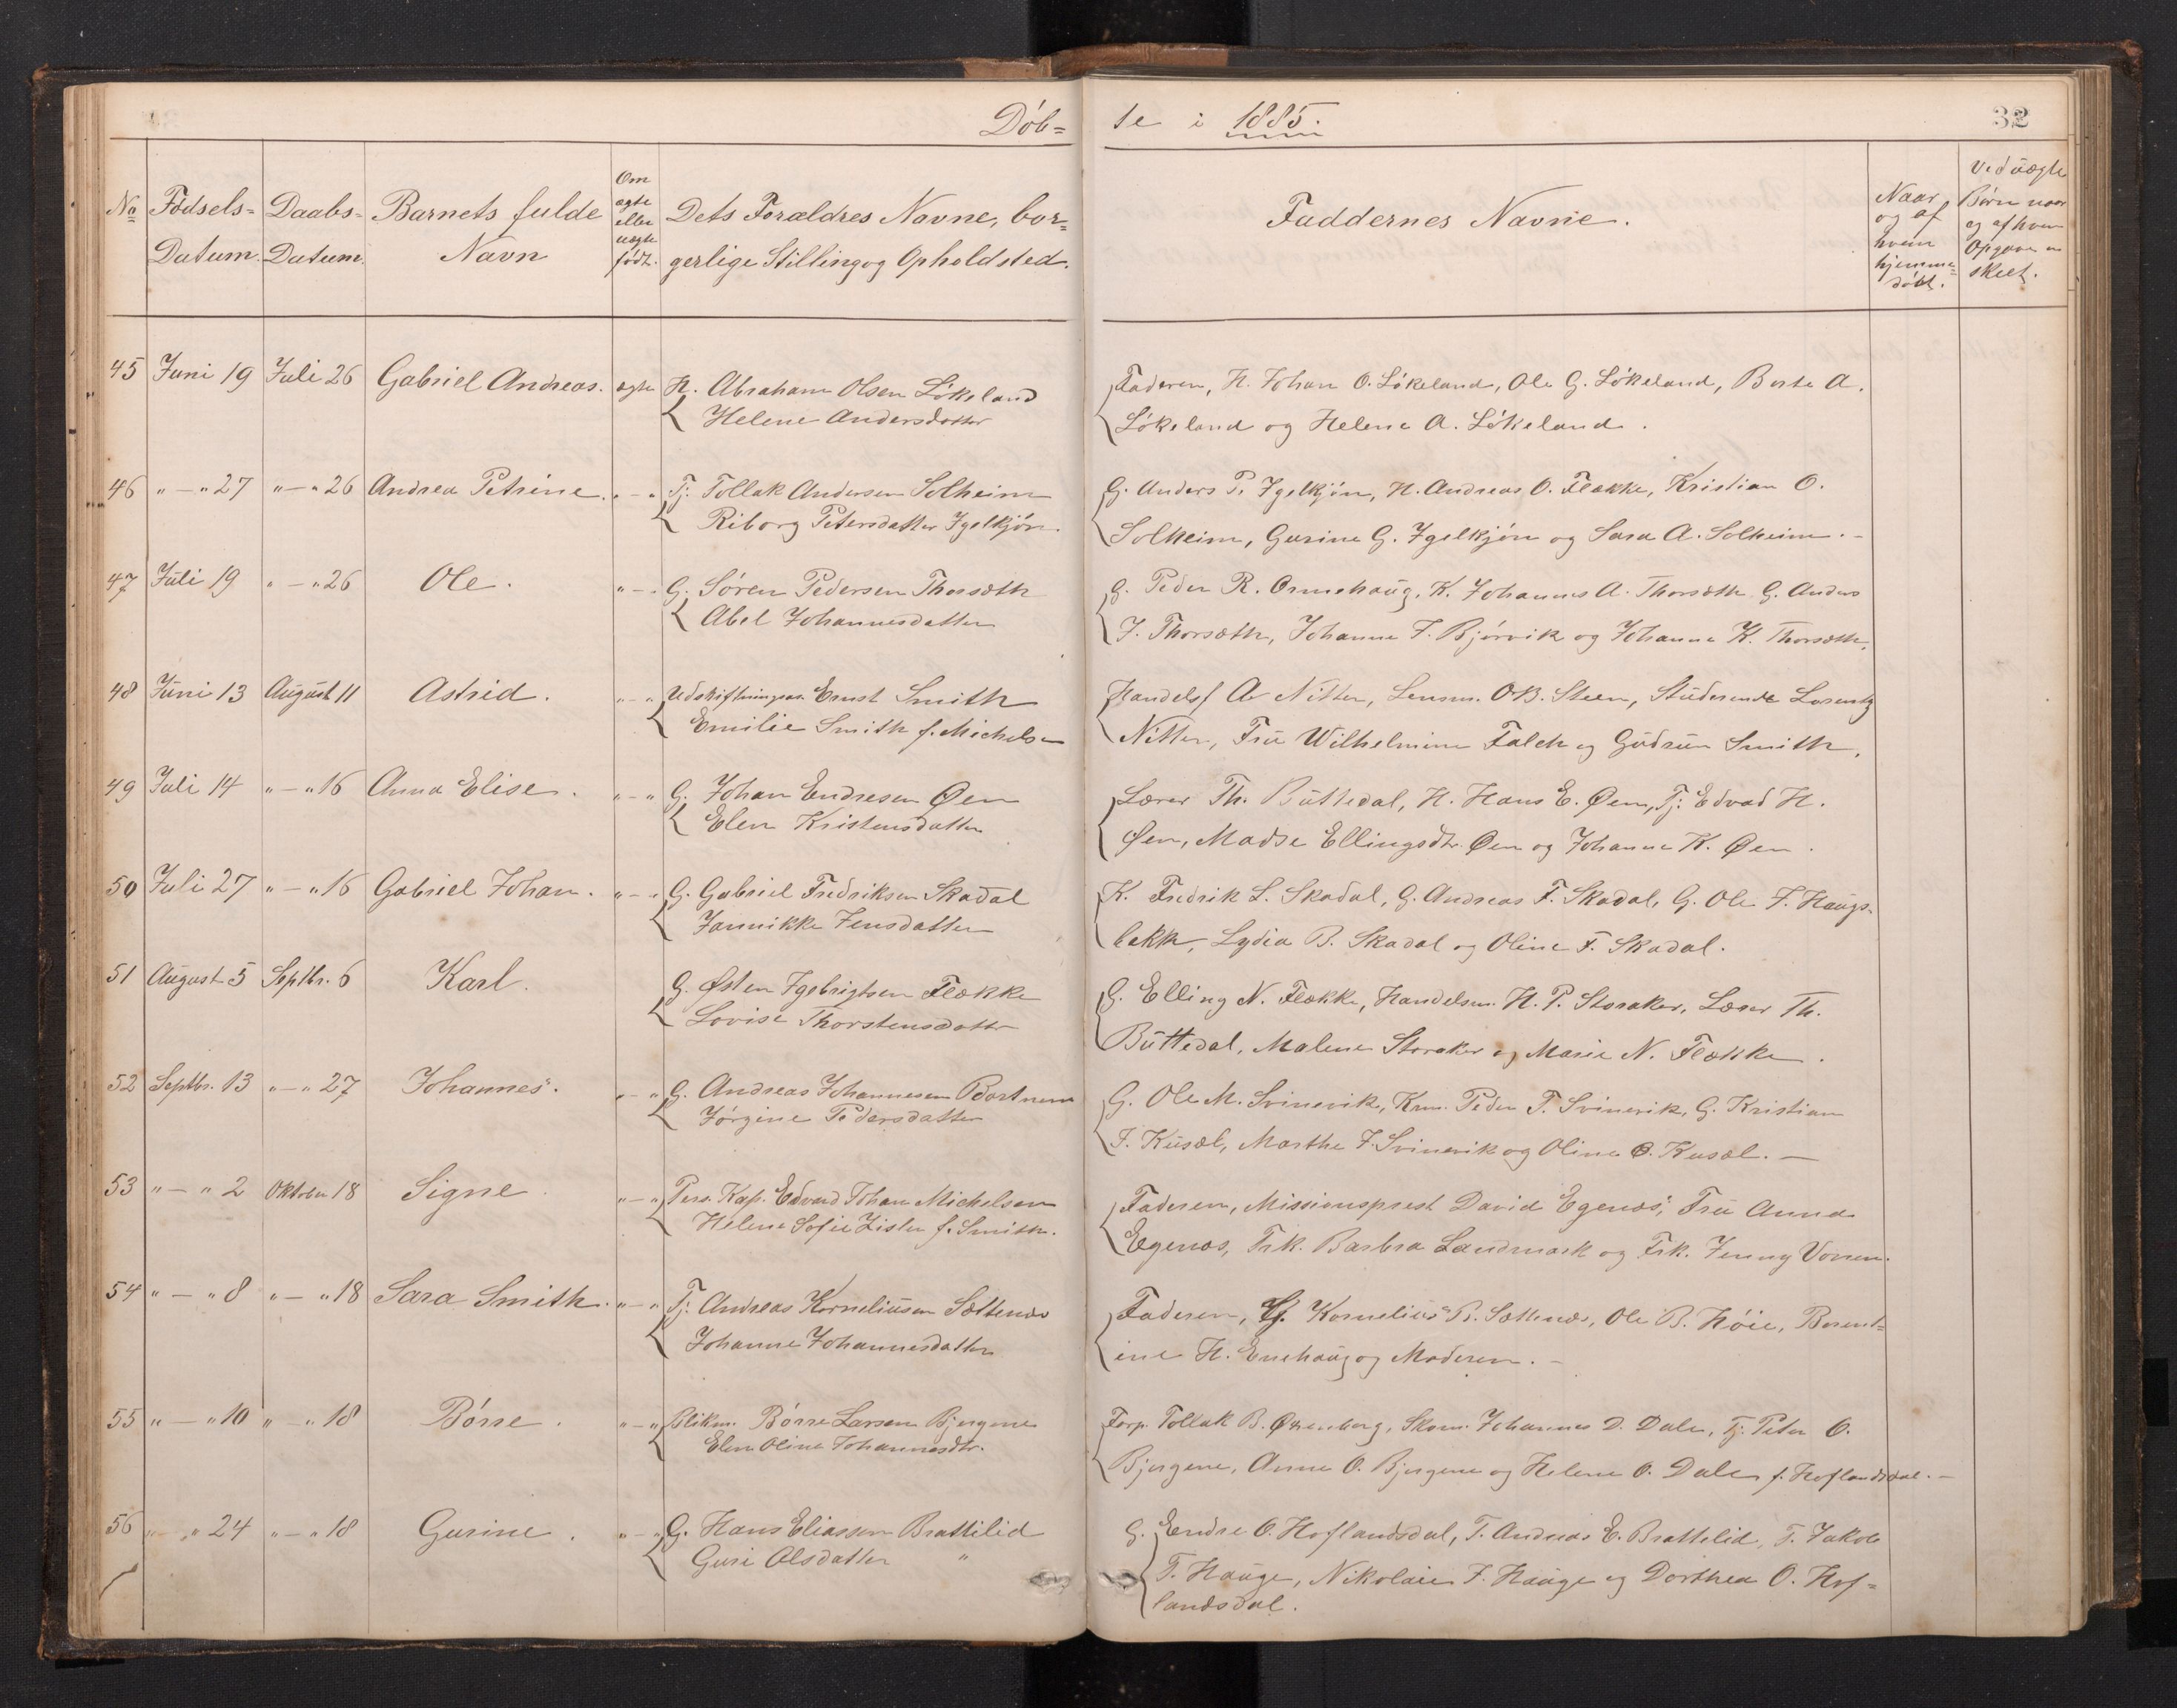 Döb=
te i 1885.
32
No Födsels= Datum. Daabs= Datum. Barnets fulde Navn Om ægte eller uægte födt. Dets Forældres Navne, bor=
gerlige Stilling og Opholdsted.
Faddernes Navne.
Naar og af hvem hjemme= döbt.
Ved uægte Børn naar og af hvem Opgaven er skeet.
45 Juni 19 Juli 26 Gabriel Andreas. ægte H. Abraham Olsen Lökeland
Helene Andersdatter
Faderen, H. Johan O. Lökeland, Ole G. Lökeland, Berte A.
Lökeland og Helene A. Lökeland.
46 " — " 27 " — " 26 Andrea Petrine. " — " Tj. Tollak Andersen Solheim
Riborg Petersdatter Igelkjön.
G. Anders P. Igelkjön, H. Andreas O. Flække, Kristian O.
Solheim, Gurine G. Igelkjön og Sara A. Solheim. —
47 Juli 19 " — " 26 Ole. " — " G. Sören Pedersen Thorsæth
Abel Johannesdatter
G. Peder R. Ormehaug, K. Johannes A. Thorsæth, G. Anders
J. Thorsæth, Johanne J. Björvik og Johanne K. Thorsæth.
48 Juni 13 August 11 Astrid. " — " Udskiftningsas. Ernst Smith
Emilie Smith f. Michelsen
Handelsf A Nitter, Lensm. O.B. Steen, Studerende Lorentz
Nitter, Fru Wilhelmine Falch og Gudrun Smith.
49 Juli 14 " — " 16 Anna Elise. " — " G. Johan Endresen Øen
Elen Kristensdatter
Lærer Th. Buttedal, H. Hans E. Øen, Tj: Edvad H.
Øen, Madse Ellingsdtr. Øen og Johanne K. Øen.
50 Juli 27 " — " 16 Gabriel Johan. " — " G. Gabriel Fredriksen Skadal
Jannikke Jensdatter
K. Fredrik L. Skadal, G. Andreas F. Skadal, G. Ole J. Haugs-
bakk, Lydia B. Skadal og Oline F. Skadal.
51 August 5 Septbr. 6 Karl. G. Østen Igebrigtsen Flække
Lovise Thorstensdatter
G. Elling N. Flække, Handelsm. H. P. Storaker, Lærer Th.
Buttedal, Malene Storaker og Marie N. Flække.
52 Septbr. 13 " — " 27 Johannes. " — " G. Andreas Johannesen Bortnem
Jörgine Pedersdatter
G. Ole M. Svinevik, Krm. Peder P. Svinevik, G. Kristian
J. Kusæl, Marthe J. Svinevik og Oline O. Kusæl. —
53 " — " 2 Oktober 18 Signe. " — " Pers. Kap. Edvard Johan Michelsen
Helene Sofie Zister f. Smith.
Faderen, Missionsprest David Egenæs, Fru Anna
Egenæs, Frk. Barbra Landmark og Frk. Jenny Vonen.
54 " — " 8 " — " 18 Sara Smith. " — " Tj. Andreas Korneliusen Sættenæs
Johanne Johannesdatter
Faderen, G. Kornelius B. Sættenæs, Ole B. Höie, Berent=
ine H. Enehaug og Moderen. —
55 " — " 10 " — " 18 Börre. " — " Blikm. Börre Larsen Bjergene
Elen Oline Johannesdtr.
Forp. Tollak B. Øxenberg, Skom. Johannes D. Dale, Tj. Peter O.
Bjergene, Anne O. Bjergene og Helene O. Dale f. Hoflandsdal. —
56 " — " 24 " — " 18 Gurine. " — " G. Hans Eliassen Brattelid
Guri Olsdatter "
G. Endre O. Hoflandsdal, T. Andreas E. Brattelid, T. Jakob
T. Hauge, Nikolaie J. Hauge og Dorthea O. Hof=
landsdal.